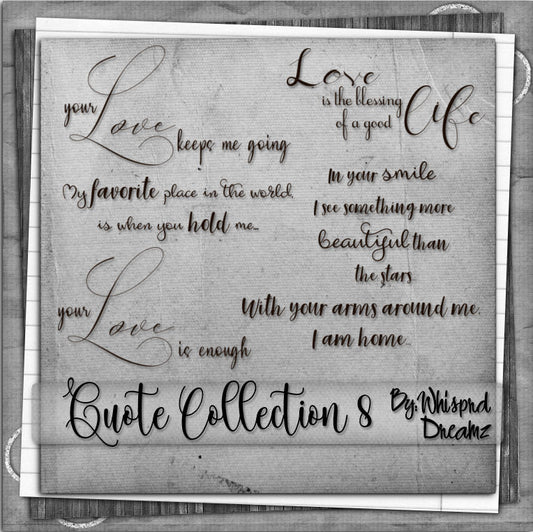 your Love
keeps me going
Love
is the blessing
of a good Life
My favorite place in the world,
is when you hold me...
In your smile
I see something more
beautiful than
the stars
your Love
is enough
With your arms around me,
I am home...
Quote Collection 8
By: Whisprd
Dreamz